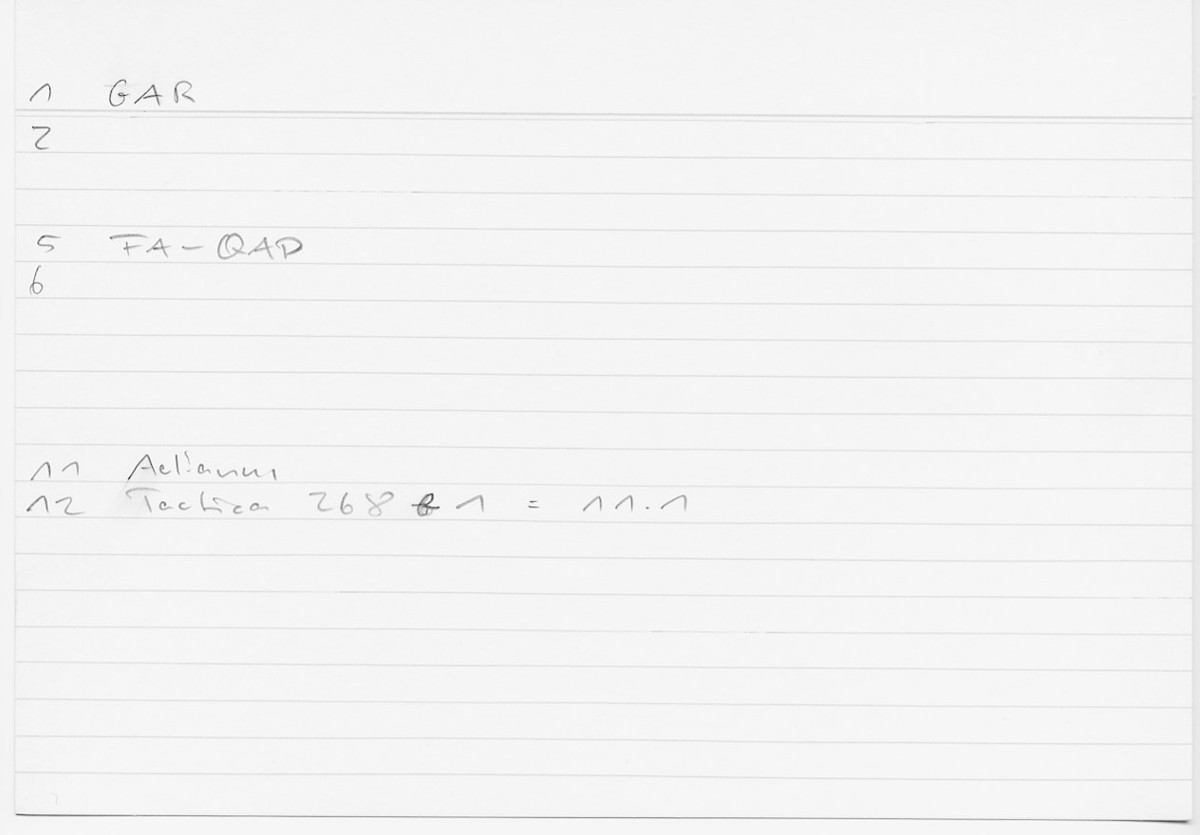 1 GAR
2
5 FA-QAD
6
11 Aelianus
12 Tactica 268 1 = 11.1